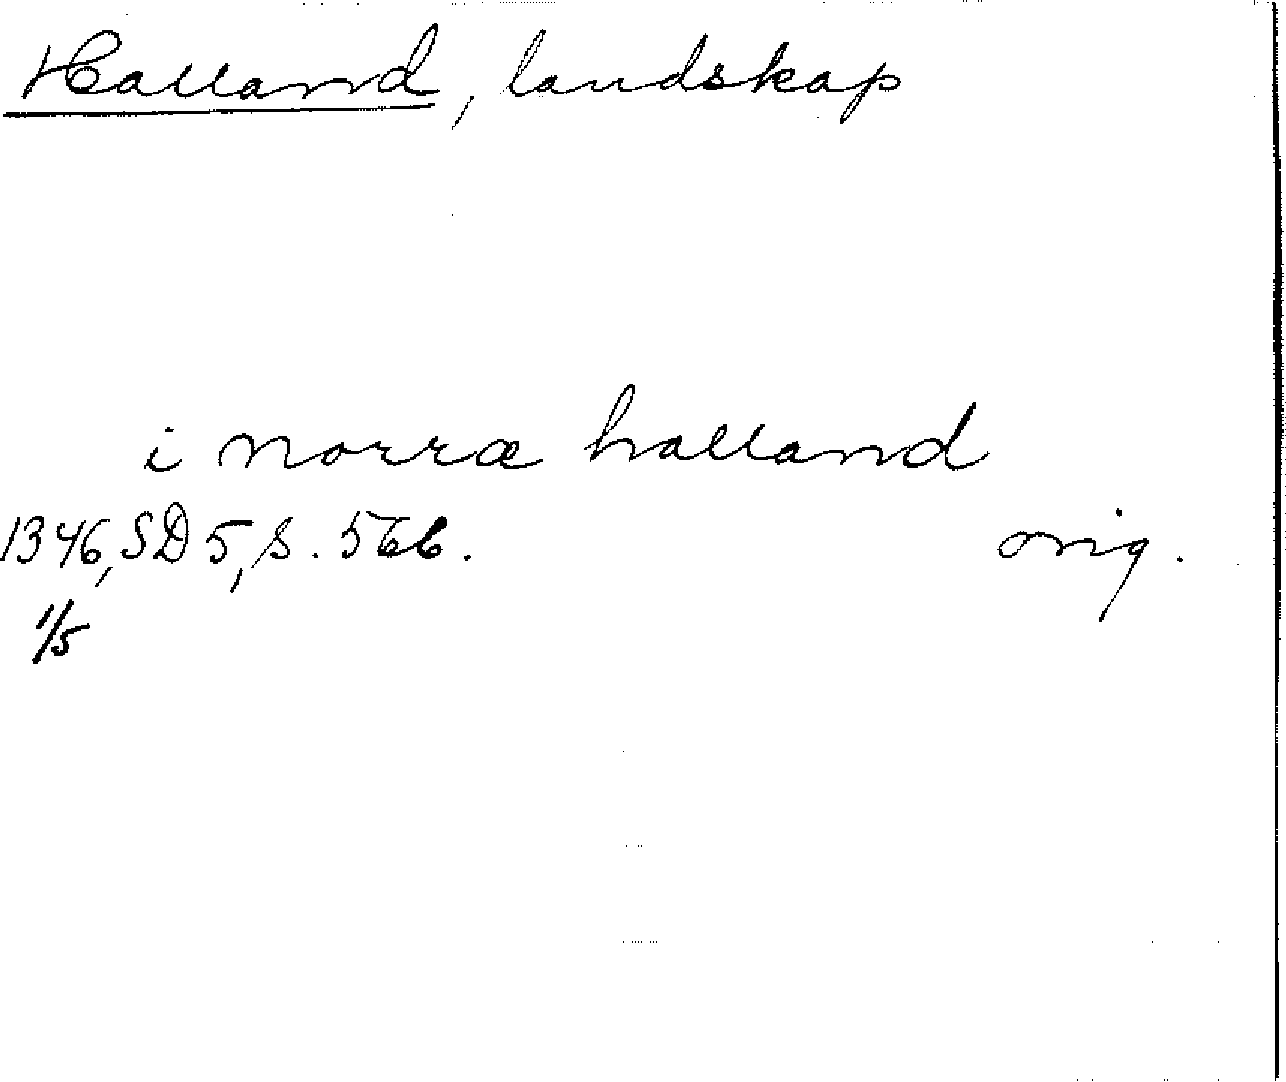 Halland, landskap
i norræ halland
1346, SD 5, s. 566. orig.
1/5